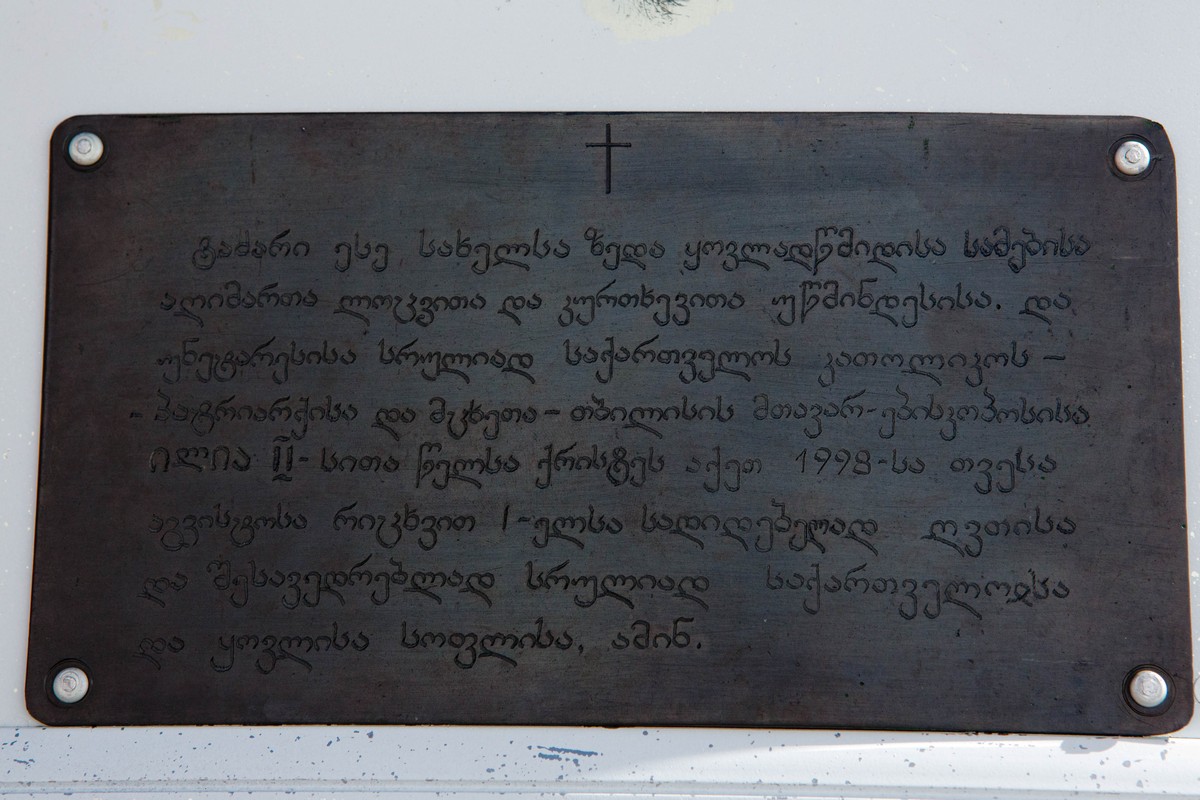 ტაძარი ესე სახელსა ზედა ყოვლადწმიდისა სამებისა
აღიმართა ლოცვითა და კურთხევითა უწმინდესისა. და
უნეტარესისა სრულიად საქართველოს კათოლიკოს –
- პატრიარქისა და მცხეთა – თბილისის მთავარ-ეპისკოპოსისა
ილია II - სითა წელსა ქრისტეს აქეთ 1998-სა თვესა
აგვისტოსა რიცხვით 1-ელსა სადიდებელად ღვთისა
და შესავედრებლად სრულიად საქართველოჲსა
და ყოვლისა სოფლისა, ამინ.